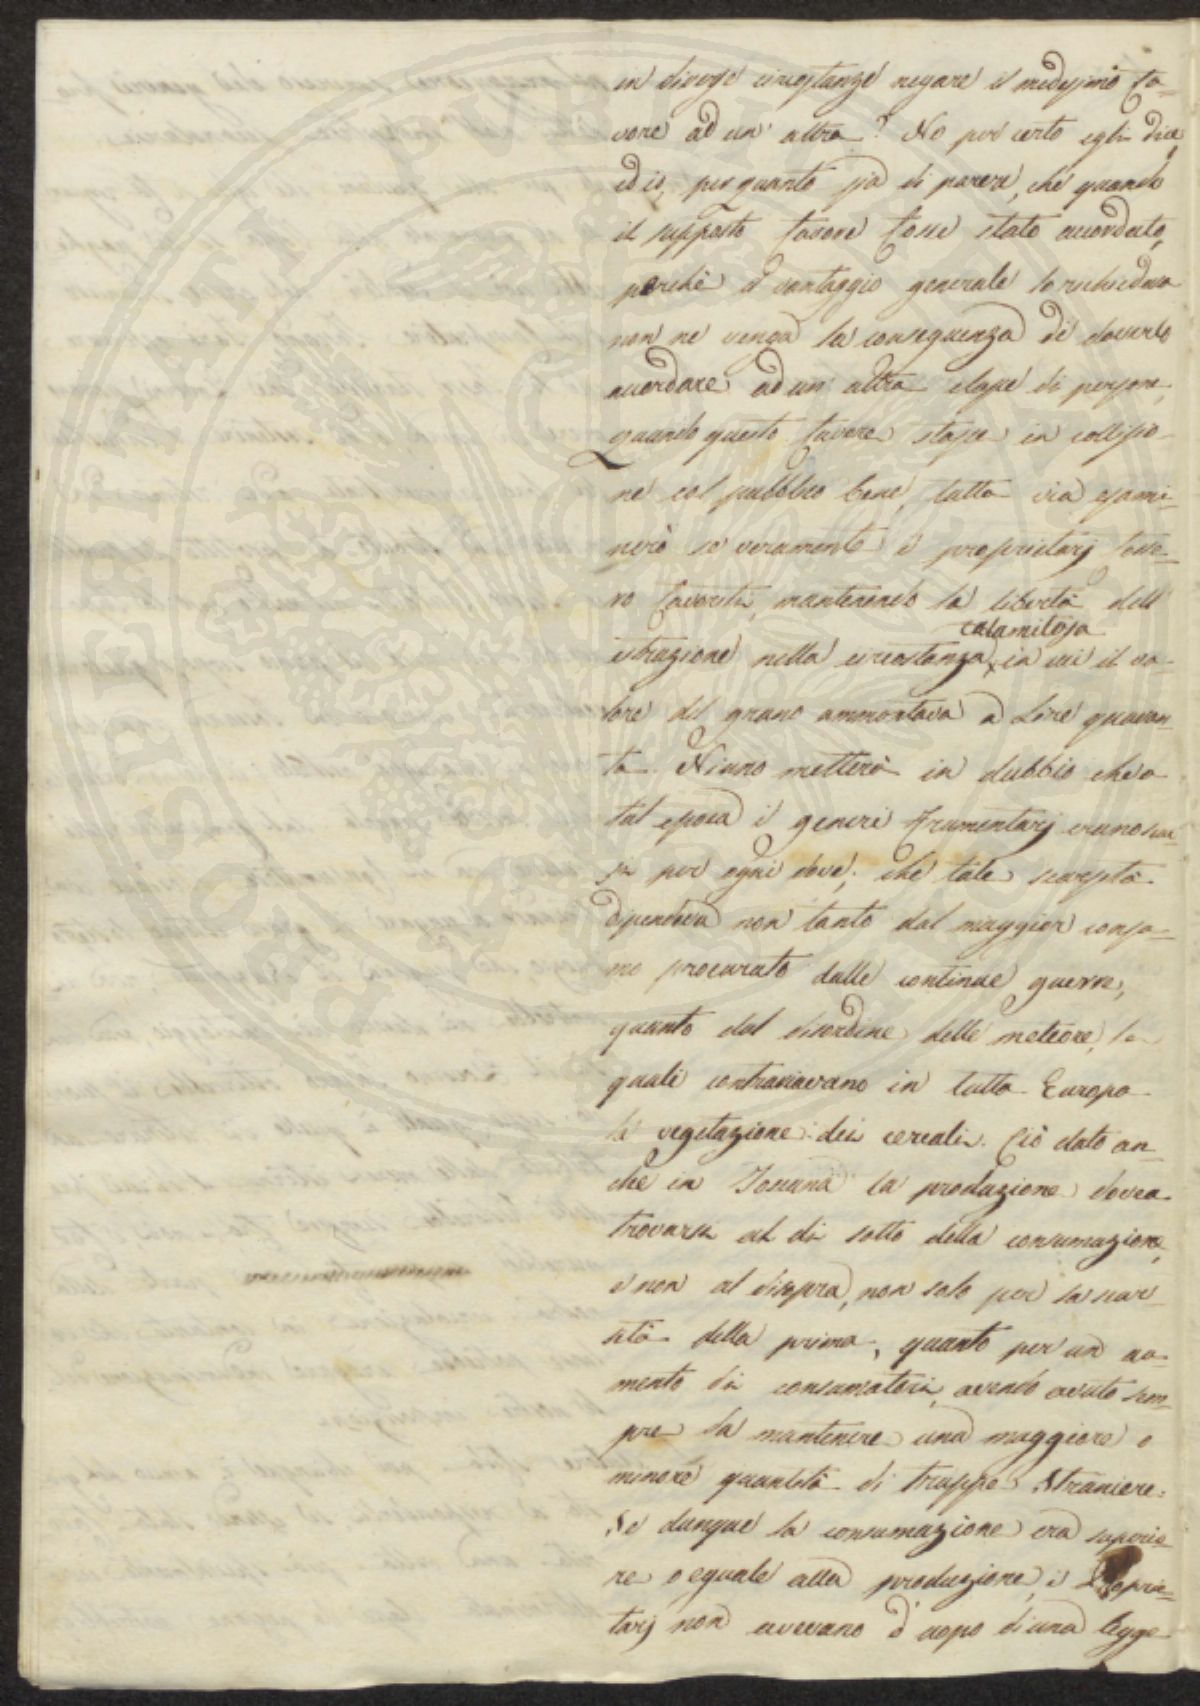 in diverse circostanze negare il medesimo fa-
vore ad un' altra? No per certo egli dice,
ed io, per quanto sia di parere, che quando
il supposto favore fosse stato accordato,
perchè il vantaggio generale lo richiedeva
non ne venga la conseguenza di doverlo
accordare ad un altra classe di persone,
quando questo favore stasse in collisio-
ne col pubblico bene, tutta via esami-
nerò se veramente i proprietarj fosse-
ro favoriti, mantenendo la libertà dell'
estrazione nella circostanza calamitosa in cui il va-
lore del grano ammontava a Lire quaran-
ta. Niuno metterà in dubbio che a
tal epoca i generi frumentarj erano scar-
si per ogni dove; che tale scarsità
dipendeva non tanto dal maggior consu-
mo procurato dalle continue guerre,
quanto dal disordine delle meteore, le
quali contrariavano in tutta Europa
la vegetazione dei cereali. Ciò dato an-
che in Toscana la produzione dovea
trovarsi al di sotto della consumazione,
e non al disopra, non solo per la scar-
sità della prima, quanto per un au-
mento di consumatori, avendo avuto sem-
pre da mantenere una maggiore o
minore quantità di truppe straniere.
Se dunque la consumazione era superio-
re o eguale alla produzione, i Proprie-
tarj non avevano d' uopo di una legge
PROSPERITATI PUBLICAE